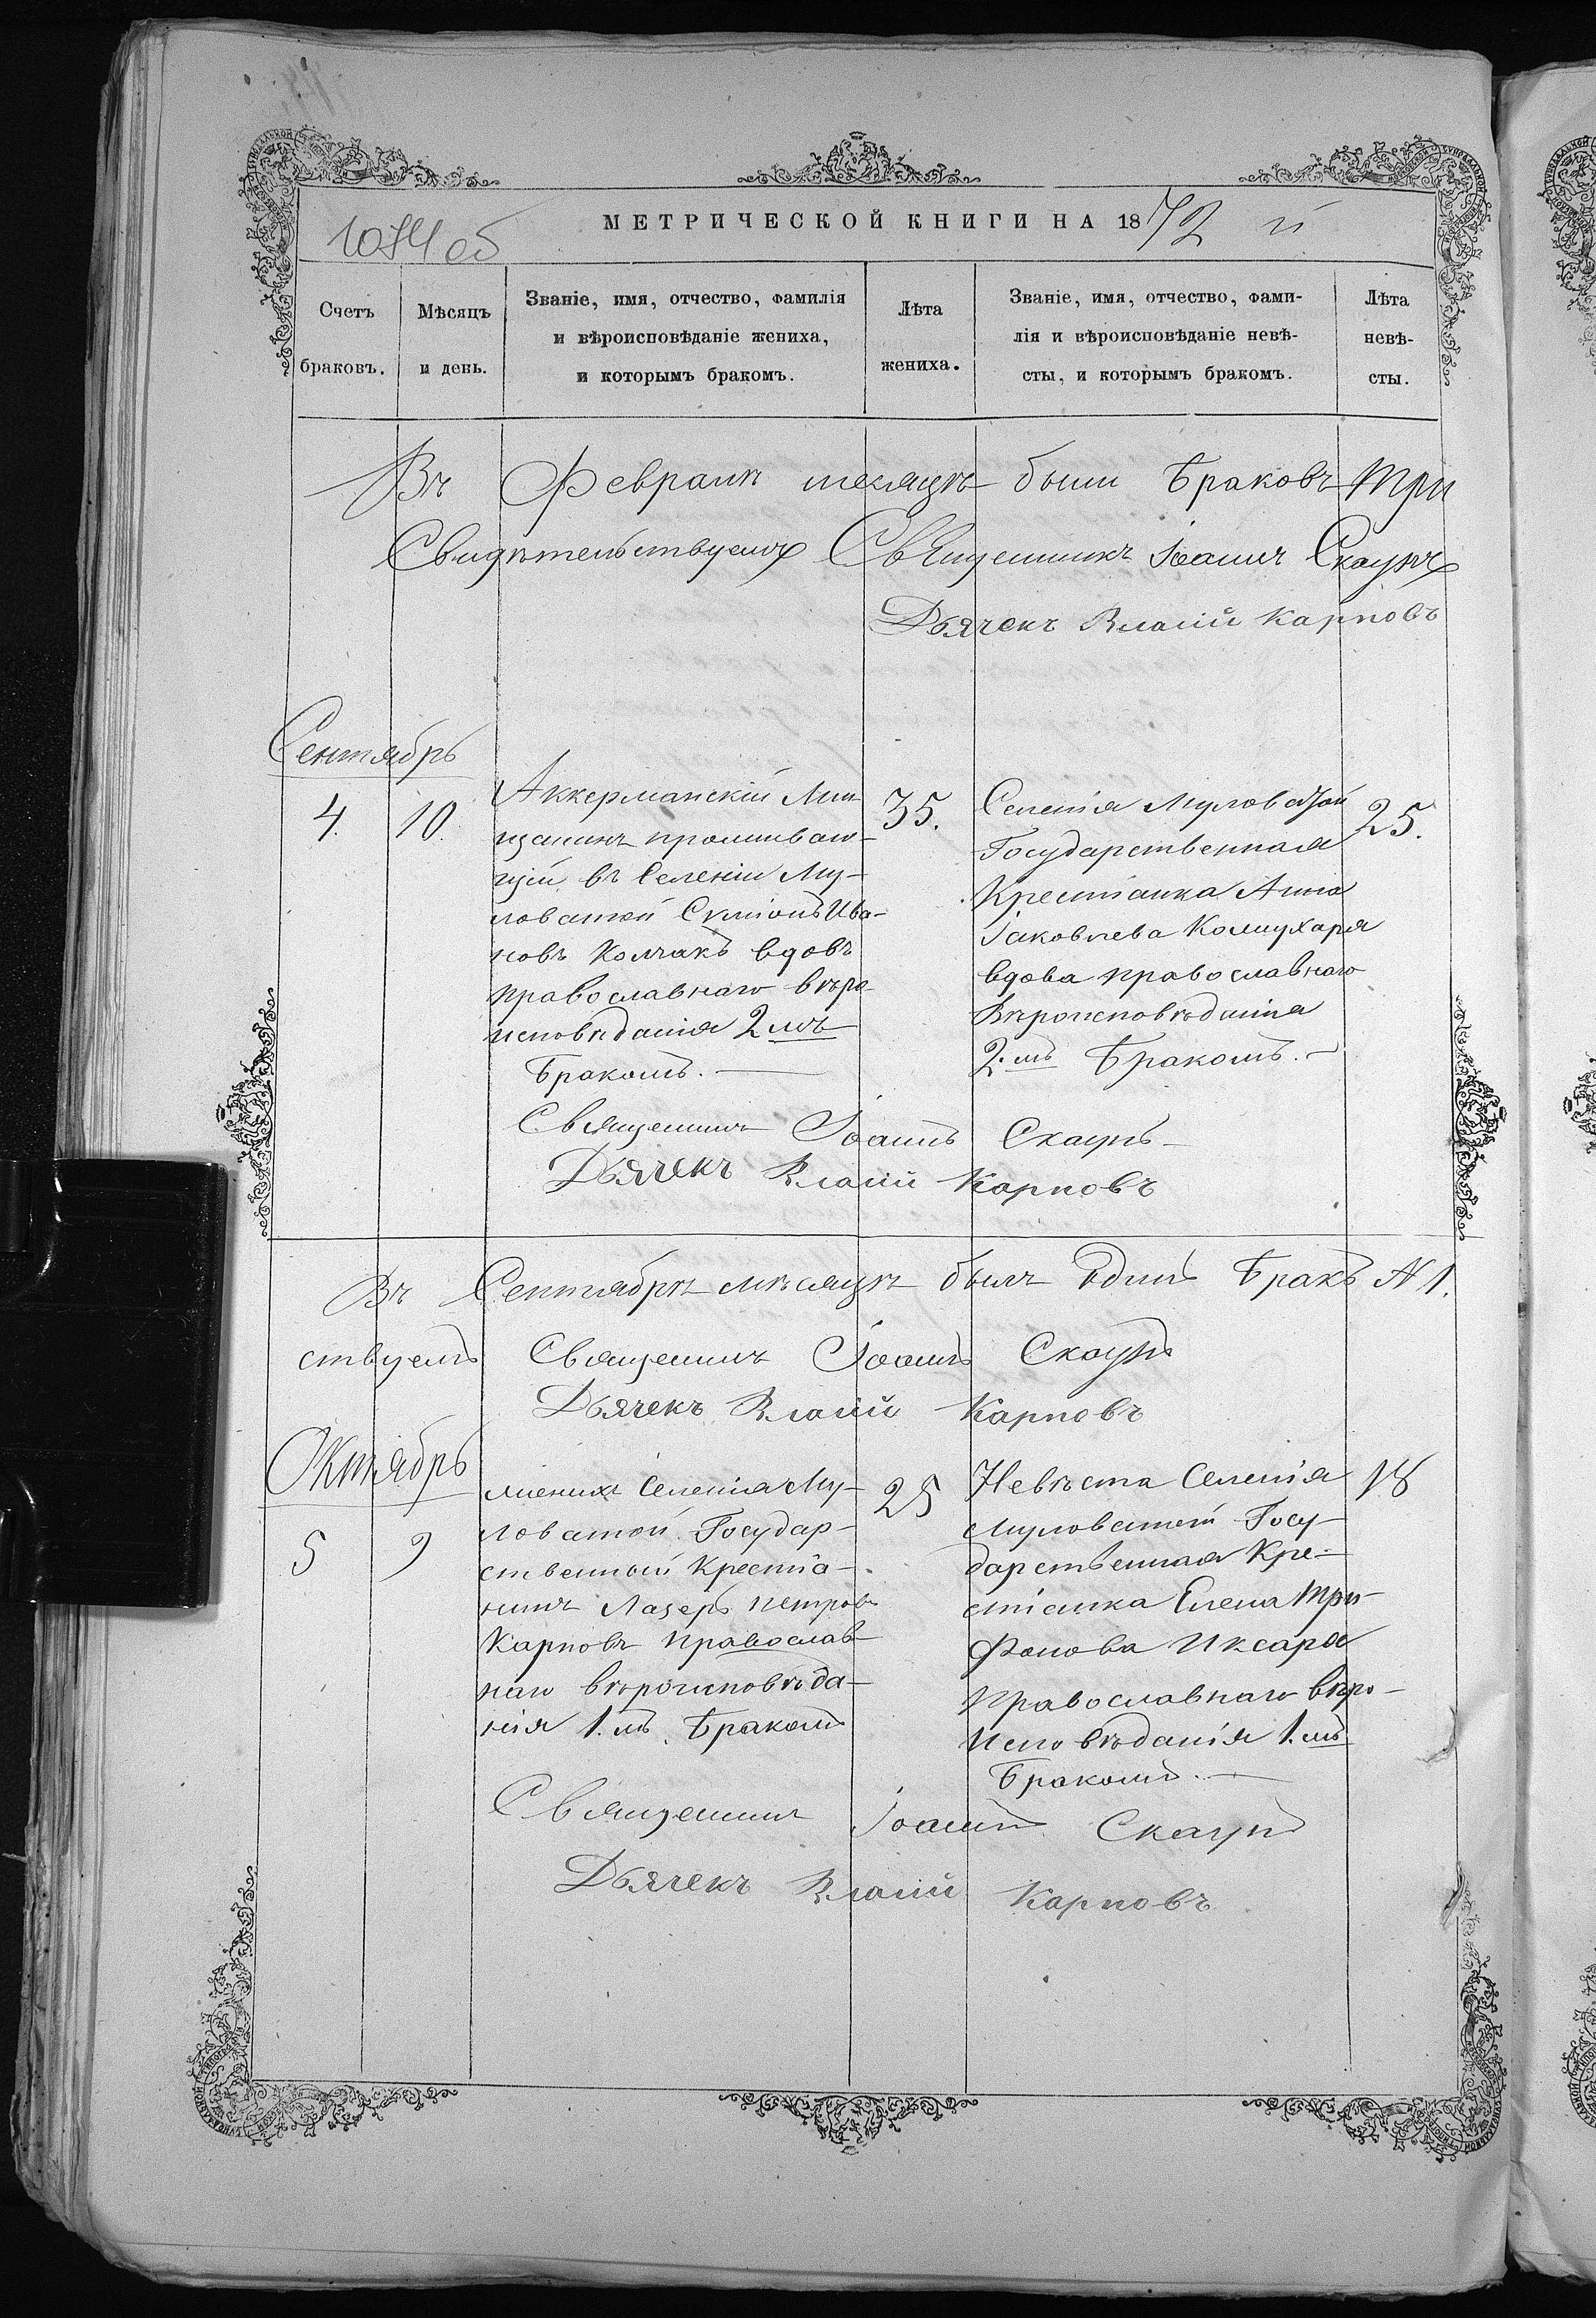 1074 об
МЕТРИЧЕСКОЙ КНИГИ НА 1872 й
Счетъ браковъ.
Мѣсяцъ и день.
Званіе, имя, отчество, фамилія
и вѣроисповѣданіе жениха,
и которымъ бракомъ.
Лѣта жениха.
Званіе, имя, отчество, фами-
лія и вѣроисповѣданіе невѣ-
сты, и которымъ бракомъ.
Лѣта невѣ-
сты.
Въ Февралѣ месяцѣ были Браковъ три
Свидѣтельствуемъ Священникъ Іоаннъ Скаунъ
Дьячекъ Власій Карповъ
Сентябрь
4. 10
Аккерманскій Мѣ-
щанинъ проживаю-
щій въ Селеніи Му-
ловатой Симіонъ Ива-
новъ Колчакъ вдовъ
православнаго вѣро-
исповѣданія 2 мъ
Бракомъ.
35.
Селенія Муловатой
Государственная
Крестіанка Анна
Іаковлева
вдова православнаго
Вѣроисповѣданія
2.мъ Бракомъ.
25.
Священникъ Іоаннъ Скаунъ
Дьячекъ Власій Карповъ
Въ Сентябрѣ мѣсяцѣ былъ одинъ Бракъ № 1.
ствуемъ Священникъ Іоаннъ Скаунъ
Дьячекъ Власій Карповъ
Октябрь
5 9
жених Селенія Му-
ловатой Государ-
ственный Крестіа-
нинъ Лазерь Петровъ
Карповъ православ-
наго вѣроисповѣда-
нія 1.мъ Бракомъ
25
Невѣста Селенія
Муловатой Госу-
дарственная Кре-
стіанка Елена Три-
фонова Иксаря
Православнаго вѣро-
исповѣданія 1.мъ
Бракомъ.
18
Священникъ Іоаннъ Скаунъ
Дьячекъ Власій Карповъ